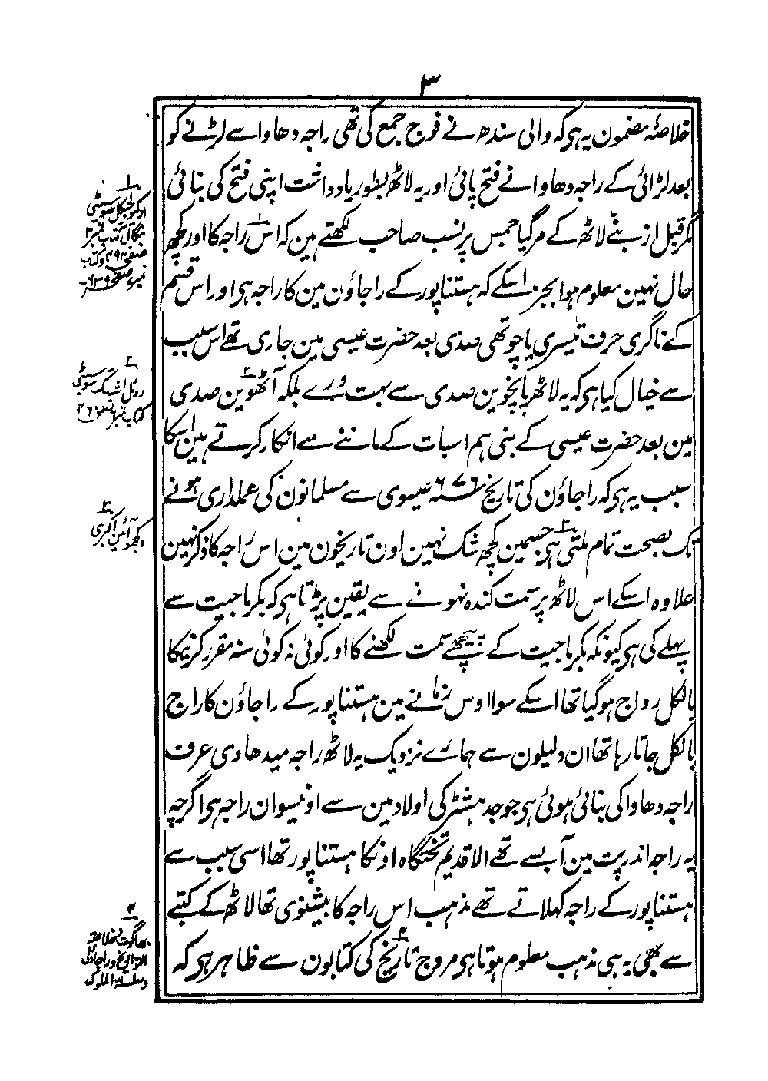 ۳
خلاصہ مضمون یہ ہی کہ والی سندھ نے فوج جمع کی تھی راجہ دھاوا سے لڑنے کو
بعد لڑائی کے راجہ دھاوا نے فتح پائی اور یہ لاٹھ بطور یادداشت اپنی فتح کی بنائی
مگر قبل از بننے لاٹھ کے مر گیا جمس پرنسب صاحب لکھتے ہین کہ اس راجہ کا اور کچھ
حال نہین معلوم ہوا بجز اسکے کہ ہستناپور کے راجاؤن مین کا راجہ ہی اور اس قسم
کے ناگری حرف تیسری یا چوتھی صدی بعد حضرت عیسی مین جاری تھے اس سبب
سے خیال کیا ہی کہ یہ لاٹھ پانچوین صدی سے بہت ورے بلکہ آٹھوین صدی
مین بعد حضرت عیسی کے بنی ہم اسبات کے ماننے سے انکار کرتے ہین اسکا
سبب یہ ہی کہ راجاؤن کی تاریخ سنہ ۶۷۶ عیسوی سے مسلمانون کی عملداری ہونے
تک بصحت تمام ملتی ہی جسمین کچھ شک نہین اون تاریخون مین اس راجہ کا ذکر نہین
علاوہ اسکے اس لاٹھ پر سمت کندہ نہونے سے یقین پڑتا ہی کہ بکرماجیت سے
پہلے کی ہی کیونکہ بکرماجیت کے پیچھے سمت لکھنے کا اور کوئی نہ کوئی سنہ مقرر کرنیکا
بالکل رواج ہو گیا تھا اسکے سوا اوس زمانے مین ہستناپور کے راجاؤن کا راج
بالکل جاتا رہا تھا ان دلیلون سے ہمارے نزدیک یہ لاٹھ راجہ میدھاوی عرف
راجہ دھاوا کی بنائی ہوئی ہی جو جدہشٹر کی اولاد مین سے اونیسوان راجہ ہی اگرچہ
یہ راجہ اندرپت مین آ بسے تھے الا قدیم تختگاہ اونکا ہستناپور تھا اسی سبب سے
ہستناپور کے راجہ کہلاتے تھے مذہب اس راجہ کا بیشنوی تھا لاٹھ کے کتبے
سے بھی یہ ہی مذہب معلوم ہوتا ہی مروج تاریخ کی کتابون سے ظاہر ہی کہ
۲
رویل ایشیاٹک سوسیٹی
۳
دیکھو آئین اکبری
۴
بھاگوت خلاصۃ
التواریخ و راجاولی
و سلسلۃ الملوک